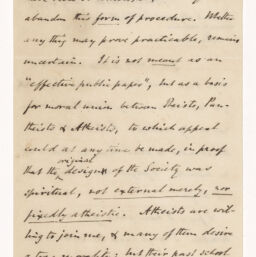 abandon this form of procedure. Whether
anything may prove practicable, remains
uncertain. It is not meant as an
"effective public paper", but as a basis
for moral union between Theists, Pan-
theists & Atheists, to which appeal
could at any time be made, in proof
that the original design of the Society was
spiritual, not external merely, nor
fixedly atheistic. Atheists are wil-
ling to join me, & many of them desire
a true morality: but their past school